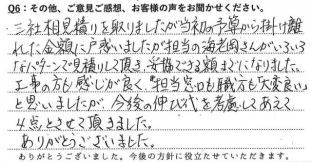 Q6：その他、ご意見ご感想、お客様の声をお聞かせください。
・三社相見積りを取りましたが当初の予算から掛け離
れた金額に戸惑いましたが担当の海老岡さんがいろいろ
なパターンで見積りして頂き、妥協できる額までになりました。
工事の方も感じが良く、"担当窓口も職方も大変良い"
と思いましたが、今後の伸び代を考慮してあえて
4点とさせて頂きました。
ありがとうございました。
ありがとうございました。今後の方針に役立たせていただきます。